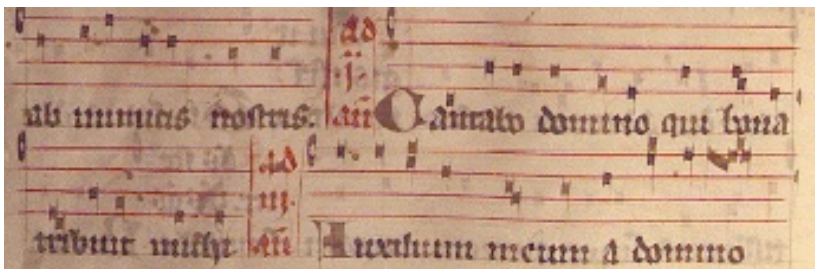 ab inimicis nostris. ad
ij.
an Cantabo domino qui bona
tribuit michi ad
iij.
an Auxilium meum a domino